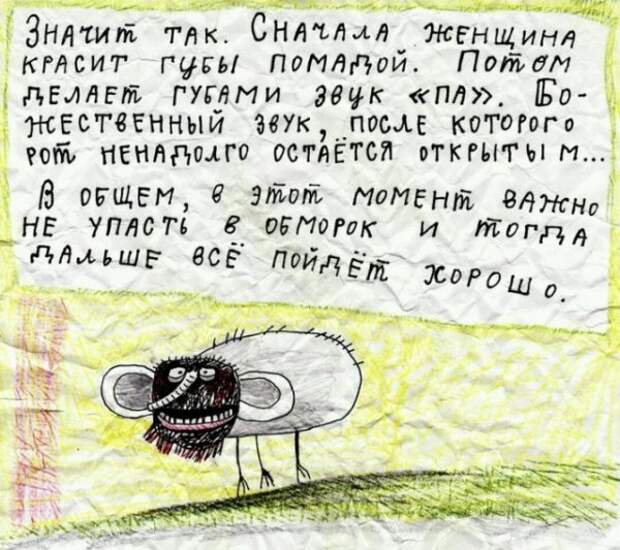 Значит так. Сначала женщина
красит губы помадой. Потом
делает губами звук «па». Бо-
жественный звук, после которого
рот ненадолго остаётся открытым...
В общем, в этот момент важно
не упасть в обморок и тогда
дальше всё пойдёт хорошо.